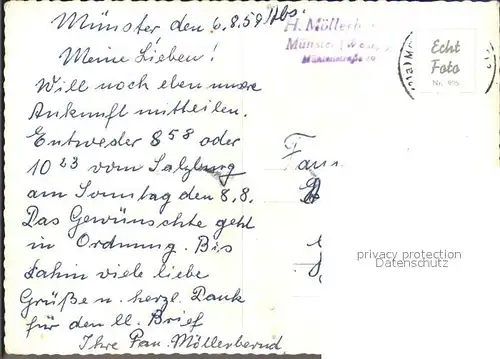 Münster, den 6.8.59 Abs.
H. Möller
Münster
Echt
Foto
Nr. 895
Meine Lieben!
Will noch eben unsere
Ankunft mitteilen.
Entweder 8 58 oder
10 23 vom Salzburg
am Sonntag den 8.8.
Das Gewünschte geht
in Ordnung. Bis
dahin viele liebe
Grüße u. herzl. Dank
für den ll. Brief
Ihre Fam. Möllerbernd
Fam
privacy protection
Datenschutz